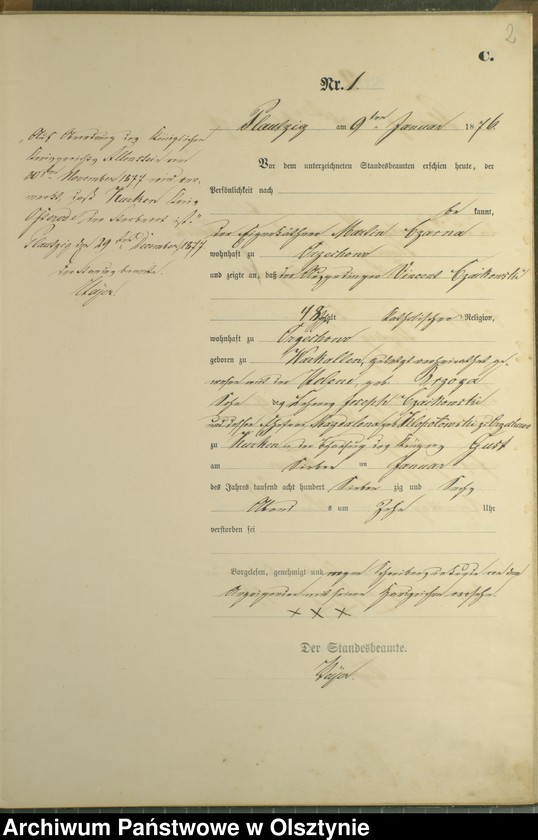 2
C.
Nr. 1.
Plautzig am 9ten Januar 1876.
Vor dem unterzeichneten Standesbeamten erschien heute, der
Persönlichkeit nach
be kannt,
der Martin Czarna
wohnhaft zu Orzechowo
und zeigte an, daß der Vincent Czaikowski
48 Jahr alt katholischer Religion,
wohnhaft zu Orzechowo
geboren zu zuletzt verheirathet ge-
wesen mit der Helene, geb. Brzoga
Sohn des Joseph Czaikowski
und dessen Ehefrau Magdalena geb.
zu Kurken in der Behausung des Gust
am Sieben ten Januar
des Jahres tausend acht hundert Sieben zig und Sechs
Abends um Zehn Uhr
verstorben sei
Vorgelesen, genehmigt und wegen Schreibensunkunde von dem
Anzeigenden mit seinem Handzeichen versehen
+ + +
Der Standesbeamte.
"Auf Anordnung des Königlichen
Kreisgerichts Allenstein vom
November 1877 wird ver-
merkt, daß Kurken Kreis
Osterode der Sterbeort ist."
Plautzig den 29ten December 1877.
Der Standesbeamte.
Archiwum Państwowe w Olsztynie